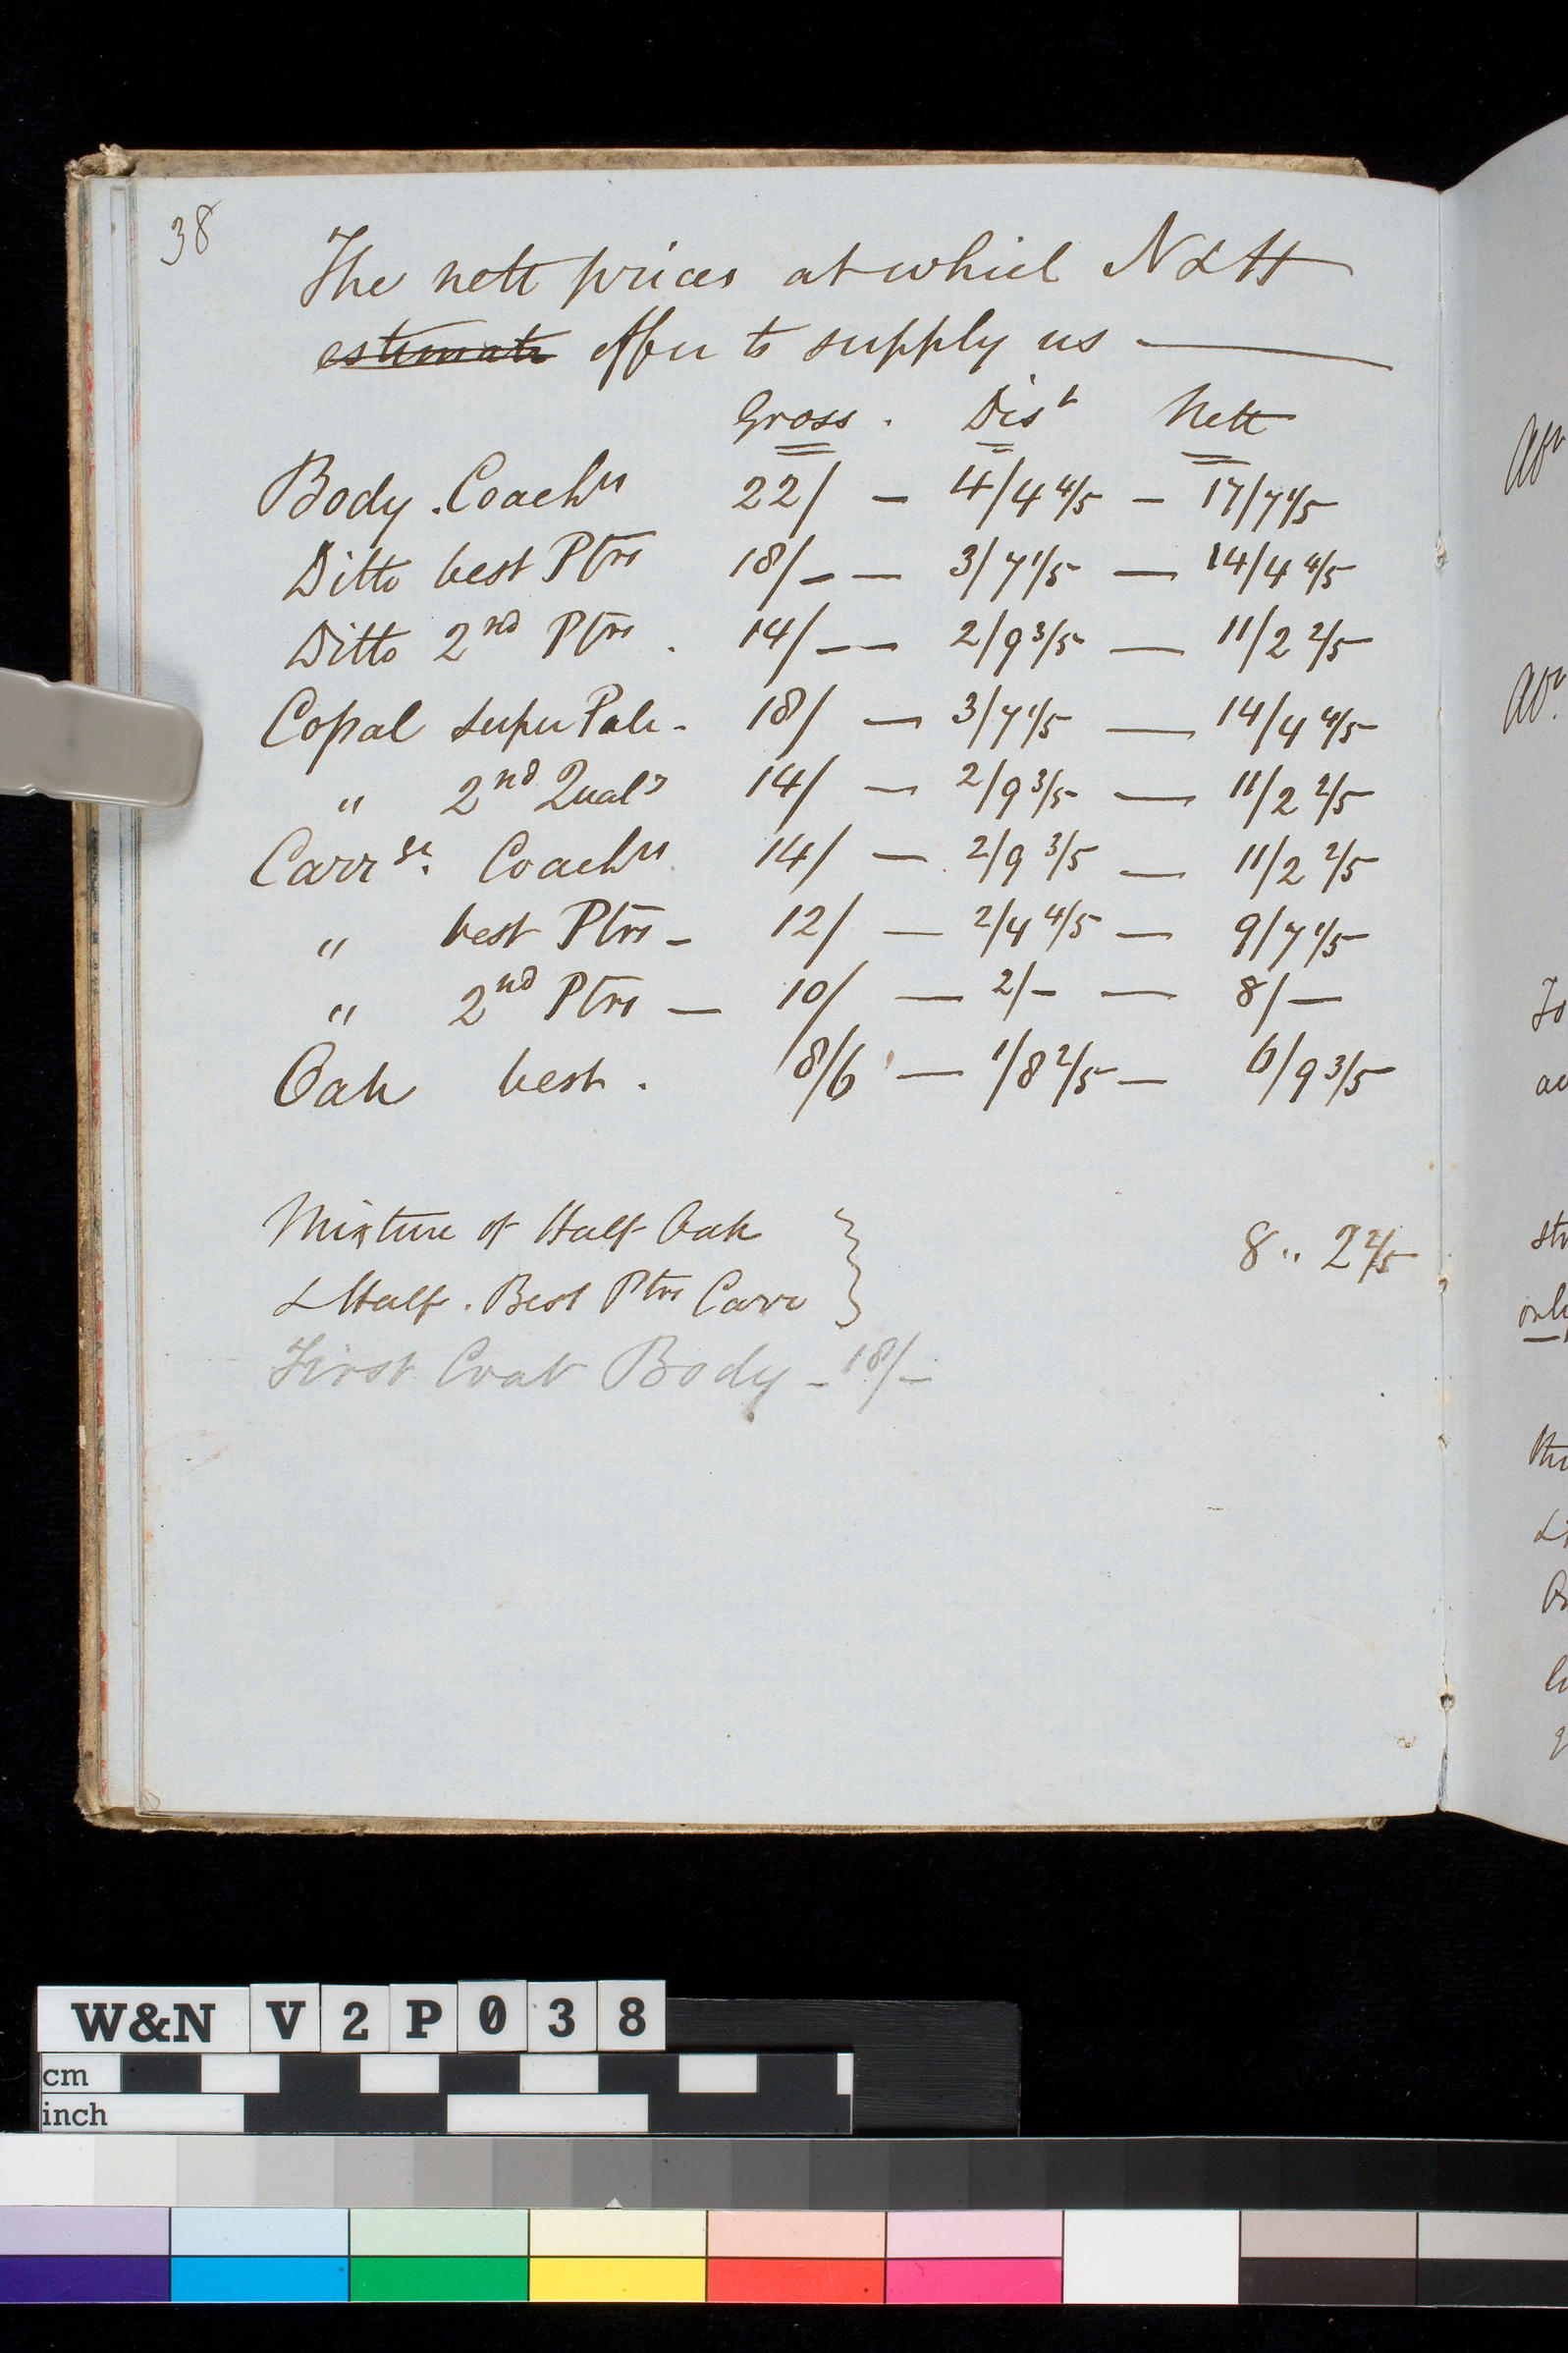 38
The nett prices at which N & H
estimate offer to supply us
Gross . Dist Nett
Body . Coachrs 22/ — 4/4 4/5 — 17/7 1/5
Ditto best Ptrs 18/- — 3/7 1/5 — 14/4 4/5
Ditto 2nd Ptrs . 14/- — 2/9 3/5 — 11/2 2/5
Copal super Pale - 18/ — 3/7 1/5 — 14/4 4/5
" 2nd Qualy 14/ — 2/9 3/5 — 11/2 2/5
Carrge. Coachrs 14/ — 2/9 3/5 — 11/2 2/5
" best Ptrs - 12/ — 2/4 4/5 — 9/7 1/5
" 2nd Ptrs — 10/ — 2/- — 8/—
Oak best . 8/6 — 1/8 2/5 — 6/9 3/5
Mixture of Half Oak
& Half . Best Ptrs Carre } 8 .. 2 2/5
First Coat Body - 18/-
W&N V 2 P 0 3 8
cm
inch